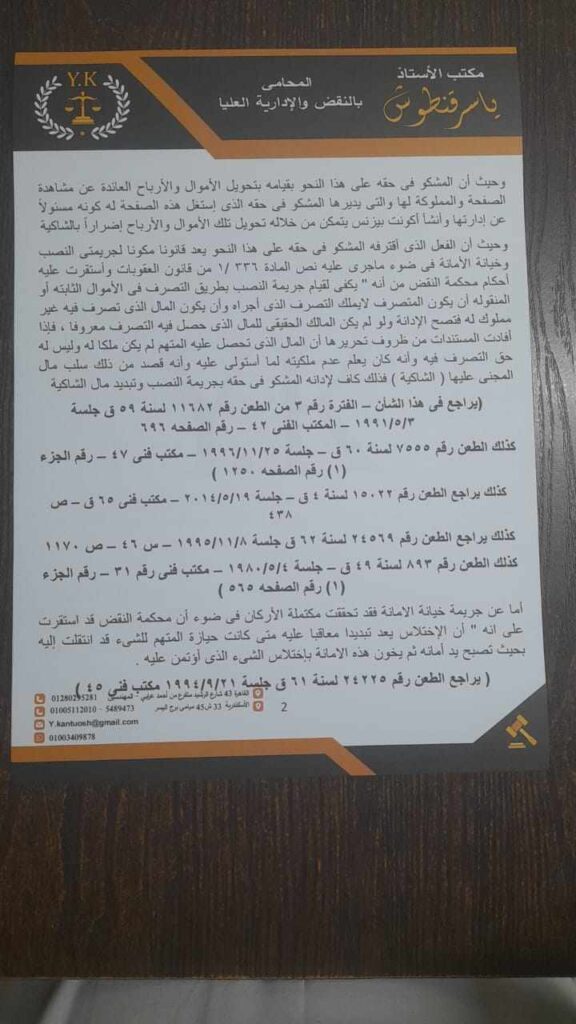 Y.K
مكتب الأستاذ
ياسر قنطوش
المحامى
بالنقض والإدارية العليا
وحيث أن المشكو فى حقه على هذا النحو بقيامه بتحويل الأموال والأرباح العائدة عن مشاهدة
الصفحة والمملوكة لها والتى يديرها المشكو فى حقه الذى إستغل هذه الصفحة له كونه مسئولاً
عن إدارتها وأنشأ أكونت بيزنس يتمكن من خلاله تحويل تلك الأموال والأرباح إضراراً بالشاكية
وحيث أن الفعل الذى أقترفه المشكو فى حقه على هذا النحو يعد قانونا مكونا لجريمتى النصب
وخيانة الأمانة فى ضوء ماجرى عليه نص المادة ٣٣٦ /١ من قانون العقوبات وأستقرت عليه
أحكام محكمة النقض من أنه " يكفى لقيام جريمة النصب بطريق التصرف فى الأموال الثابته أو
المنقوله أن يكون المتصرف لايملك التصرف الذى أجراه وأن يكون المال الذى تصرف فيه غير
مملوك له فتصح الإدانة ولو لم يكن المالك الحقيقى للمال الذى حصل فيه التصرف معروفا ، فإذا
أفادت المستندات من ظروف تحريرها أن المال الذى تحصل عليه المتهم لم يكن ملكا له وليس له
حق التصرف فيه وأنه كان يعلم عدم ملكيته لما أستولى عليه وأنه قصد من ذلك سلب مال
المجنى عليها ( الشاكية ) فذلك كاف لإدانه المشكو فى حقه بجريمة النصب وتبديد مال الشاكية
(يراجع فى هذا الشأن – الفترة رقم ٣ من الطعن رقم ١١٦٨٢ لسنة ٥٩ ق جلسة
١٩٩١/٥/٣ – المكتب الفنى ٤٢ – رقم الصفحه ٦٩٦
كذلك الطعن رقم ٧٥٥٥ لسنة ٦٠ ق – جلسة ١٩٩٦/١١/٢٥ – مكتب فنى ٤٧ – رقم الجزء
(١) رقم الصفحه ١٢٥٠ )
كذلك يراجع الطعن رقم ١٥٠٢٢ لسنة ٤ ق – جلسة ٢٠١٤/٥/١٩ – مكتب فنى ٦٥ ق – ص
٤٣٨
كذلك يراجع الطعن رقم ٢٤٥٦٩ لسنة ٦٢ ق جلسة ١٩٩٥/١١/٨ – س ٤٦ – ص ١١٧٠
كذلك الطعن رقم ٨٩٣ لسنة ٤٩ ق – جلسة ١٩٨٠/٥/٤ – مكتب فنى رقم ٣١ – رقم الجزء
(١) رقم الصفحه ٥٦٥ )
أما عن جريمة خيانة الامانة فقد تحققت مكتملة الأركان فى ضوء أن محكمة النقض قد استقرت
على انه " أن الإختلاس يعد تبديدا معاقبا عليه متى كانت حيازة المتهم للشىء قد انتقلت إليه
بحيث تصبح يد أمانه ثم يخون هذه الامانة بإختلاس الشىء الذى أوتمن عليه .
( يراجع الطعن رقم ٢٤٢٢٥ لسنة ٦١ ق جلسة ١٩٩٤/٩/٢١ مكتب فنى ٤٥ )
القاهرة 43 شارع الرشيد متفرع من أحمد عرابي - المهندسين
01280295281
الأسكندرية 33 ش45 ميامي برج اليسر
01005112010 - 5489473
Y.kantuosh@gmail.com
01003409878
2